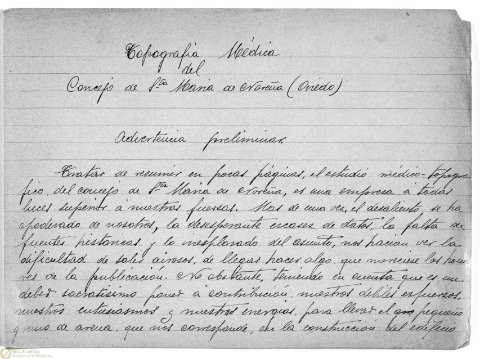 Topografía Médica
del
Concejo de Sta Maria de Noreña (Oviedo)
Advertencia preliminar.
Tratar de resumir en pocas páginas, el estudio médico-topográ-
fico, del concejo de Sta Maria de Noreña, es una empresa a todas
luces superior a nuestras fuerzas. Mas de una vez, el desaliento, se ha
apoderado de nosotros, la desesperante escasez de datos, la falta de
fuentes históricas, y lo inesplorado del asunto, nos hacian ver la
dificultad de salir airosos, de llegar a hacer algo, que mereciese los
de la publicación. No obstante, teniendo en cuenta que es un
deber sacratísimo poner a contribucion, nuestros débiles esfuerzos,
nuestros entusiasmos y nuestras energias, para llevar el pequeño
grano de arena, que nos corresponde, en la construccion del edificio